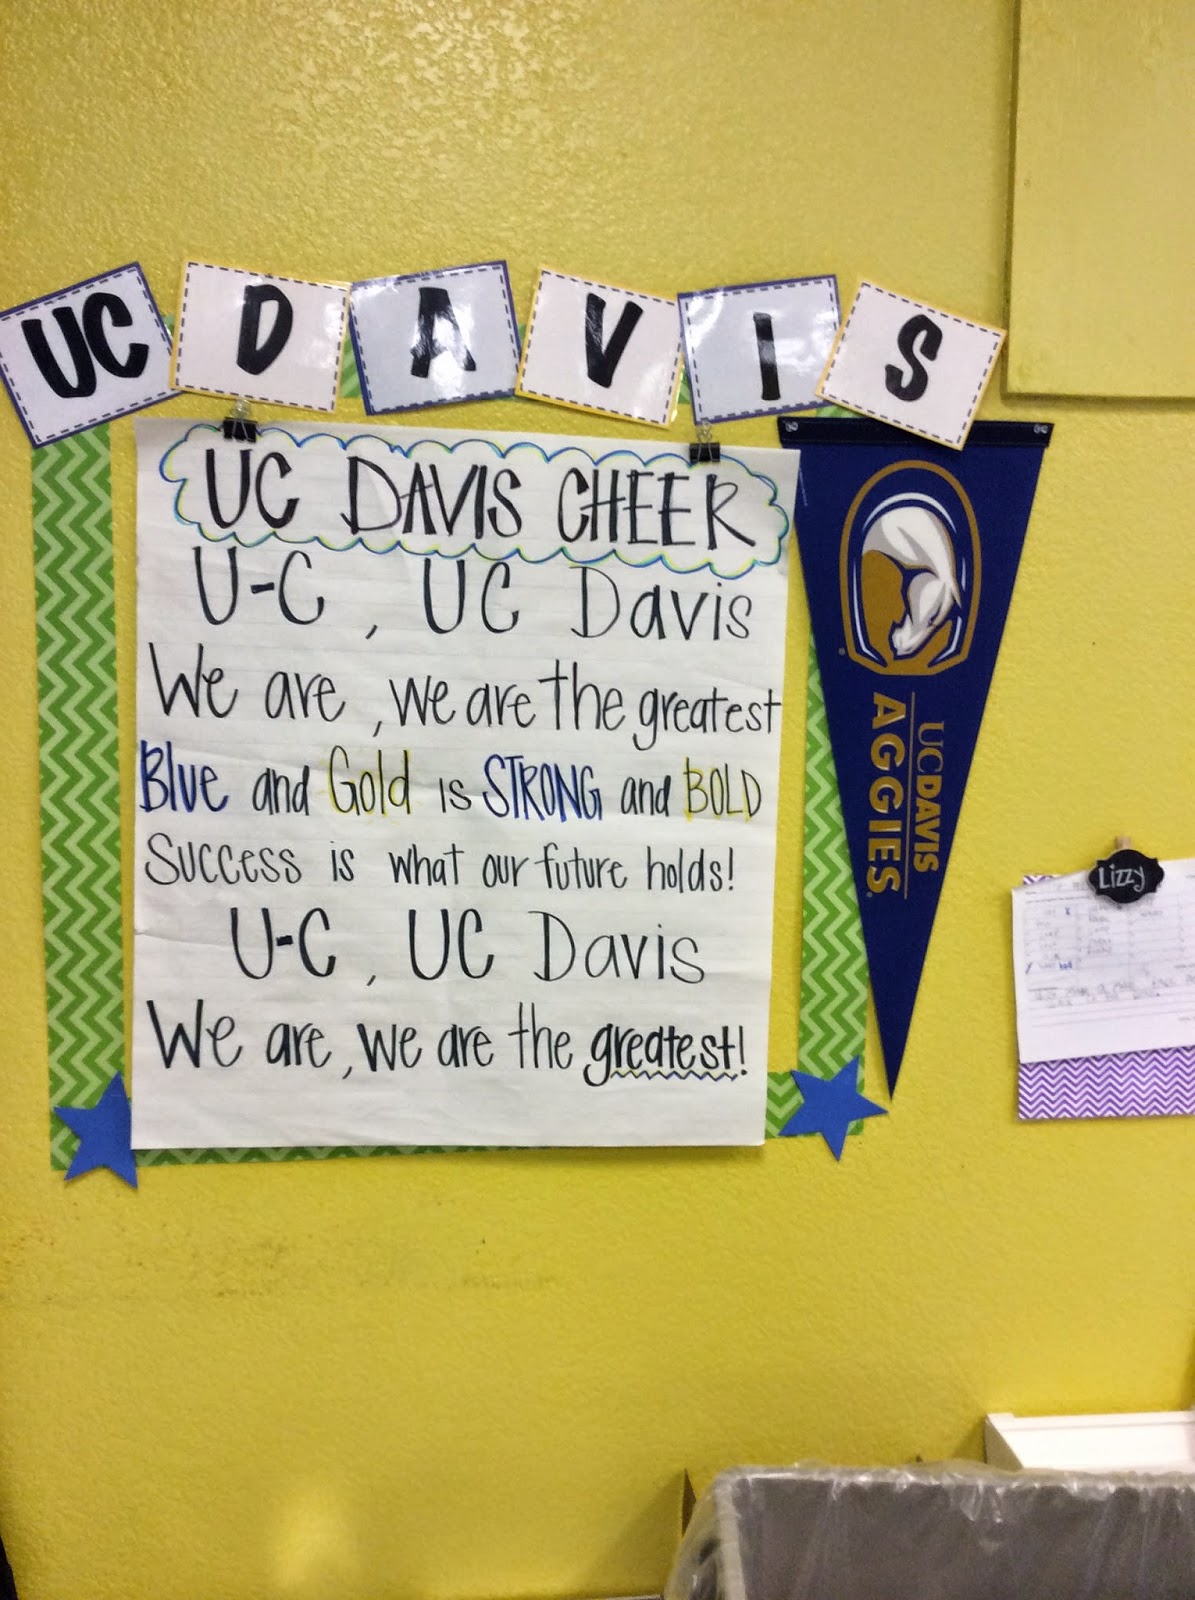 UC DAVIS
UC DAVIS CHEER
U-C, UC Davis
We are, we are the greatest
Blue and Gold is STRONG and BOLD
Success is what our future holds!
U-C, UC Davis
We are, we are the greatest!
UCDAVIS
AGGIES
Lizzy